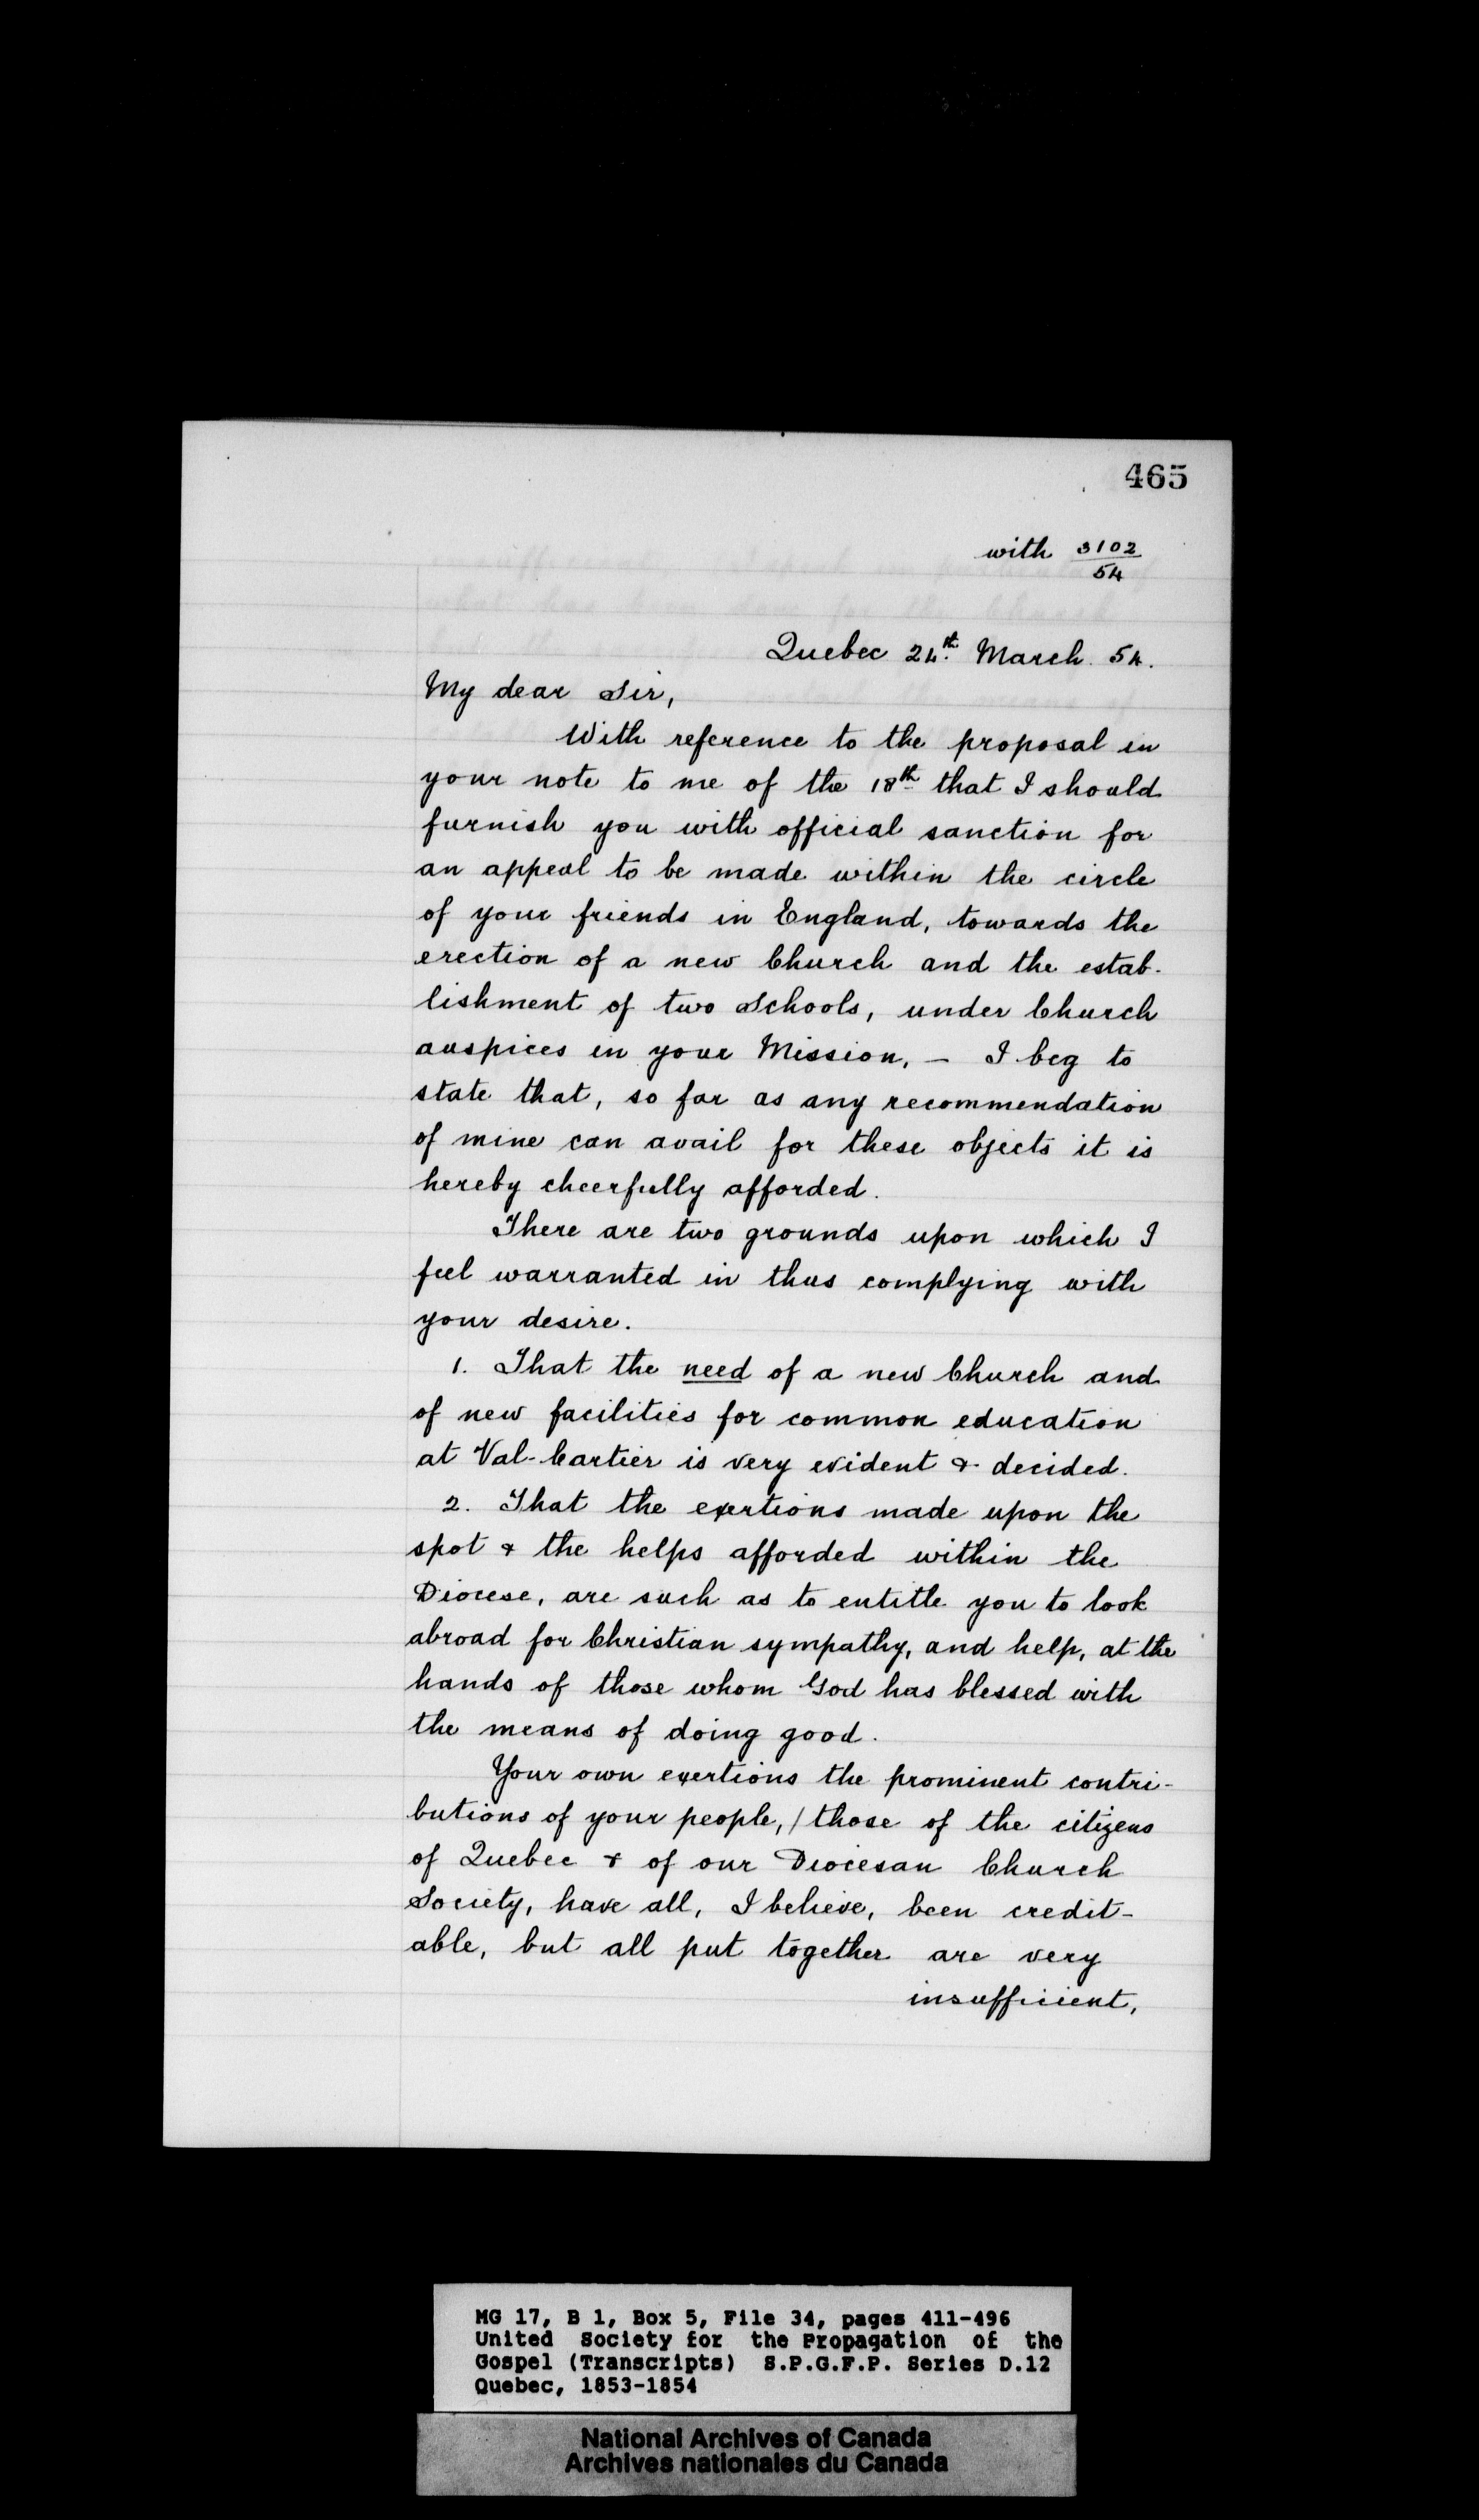 465
with 3102
54
Quebec 24th March. 54.
My dear Sir,
With reference to the proposal in
your note to me of the 18th that I should
furnish you with official sanction for
an appeal to be made within the circle
of your friends in England, towards the
erection of a new Church and the estab-
lishment of two Schools, under Church
auspices in your Mission, — I beg to
state that, so far as any recommendation
of mine can avail for these objects it is
hereby cheerfully afforded.
There are two grounds upon which I
feel warranted in thus complying with
your desire.
1. That the need of a new Church and
of new facilities for common education
at Val-Cartier is very evident & decided.
2. That the exertions made upon the
spot & the helps afforded within the
Diocese, are such as to entitle you to look
abroad for Christian sympathy, and help, at the
hands of those whom God has blessed with
the means of doing good.
Your own exertions the prominent contri-
butions of your people, / those of the citizens
of Quebec & of our Diocesan Church
Society, have all, I believe, been credit-
able, but all put together are very
insufficient,
MG 17, B 1, Box 5, File 34, pages 411-496
United Society for the Propagation of the
Gospel (Transcripts) S.P.G.F.P. Series D.12
Quebec, 1853-1854
National Archives of Canada
Archives nationales du Canada